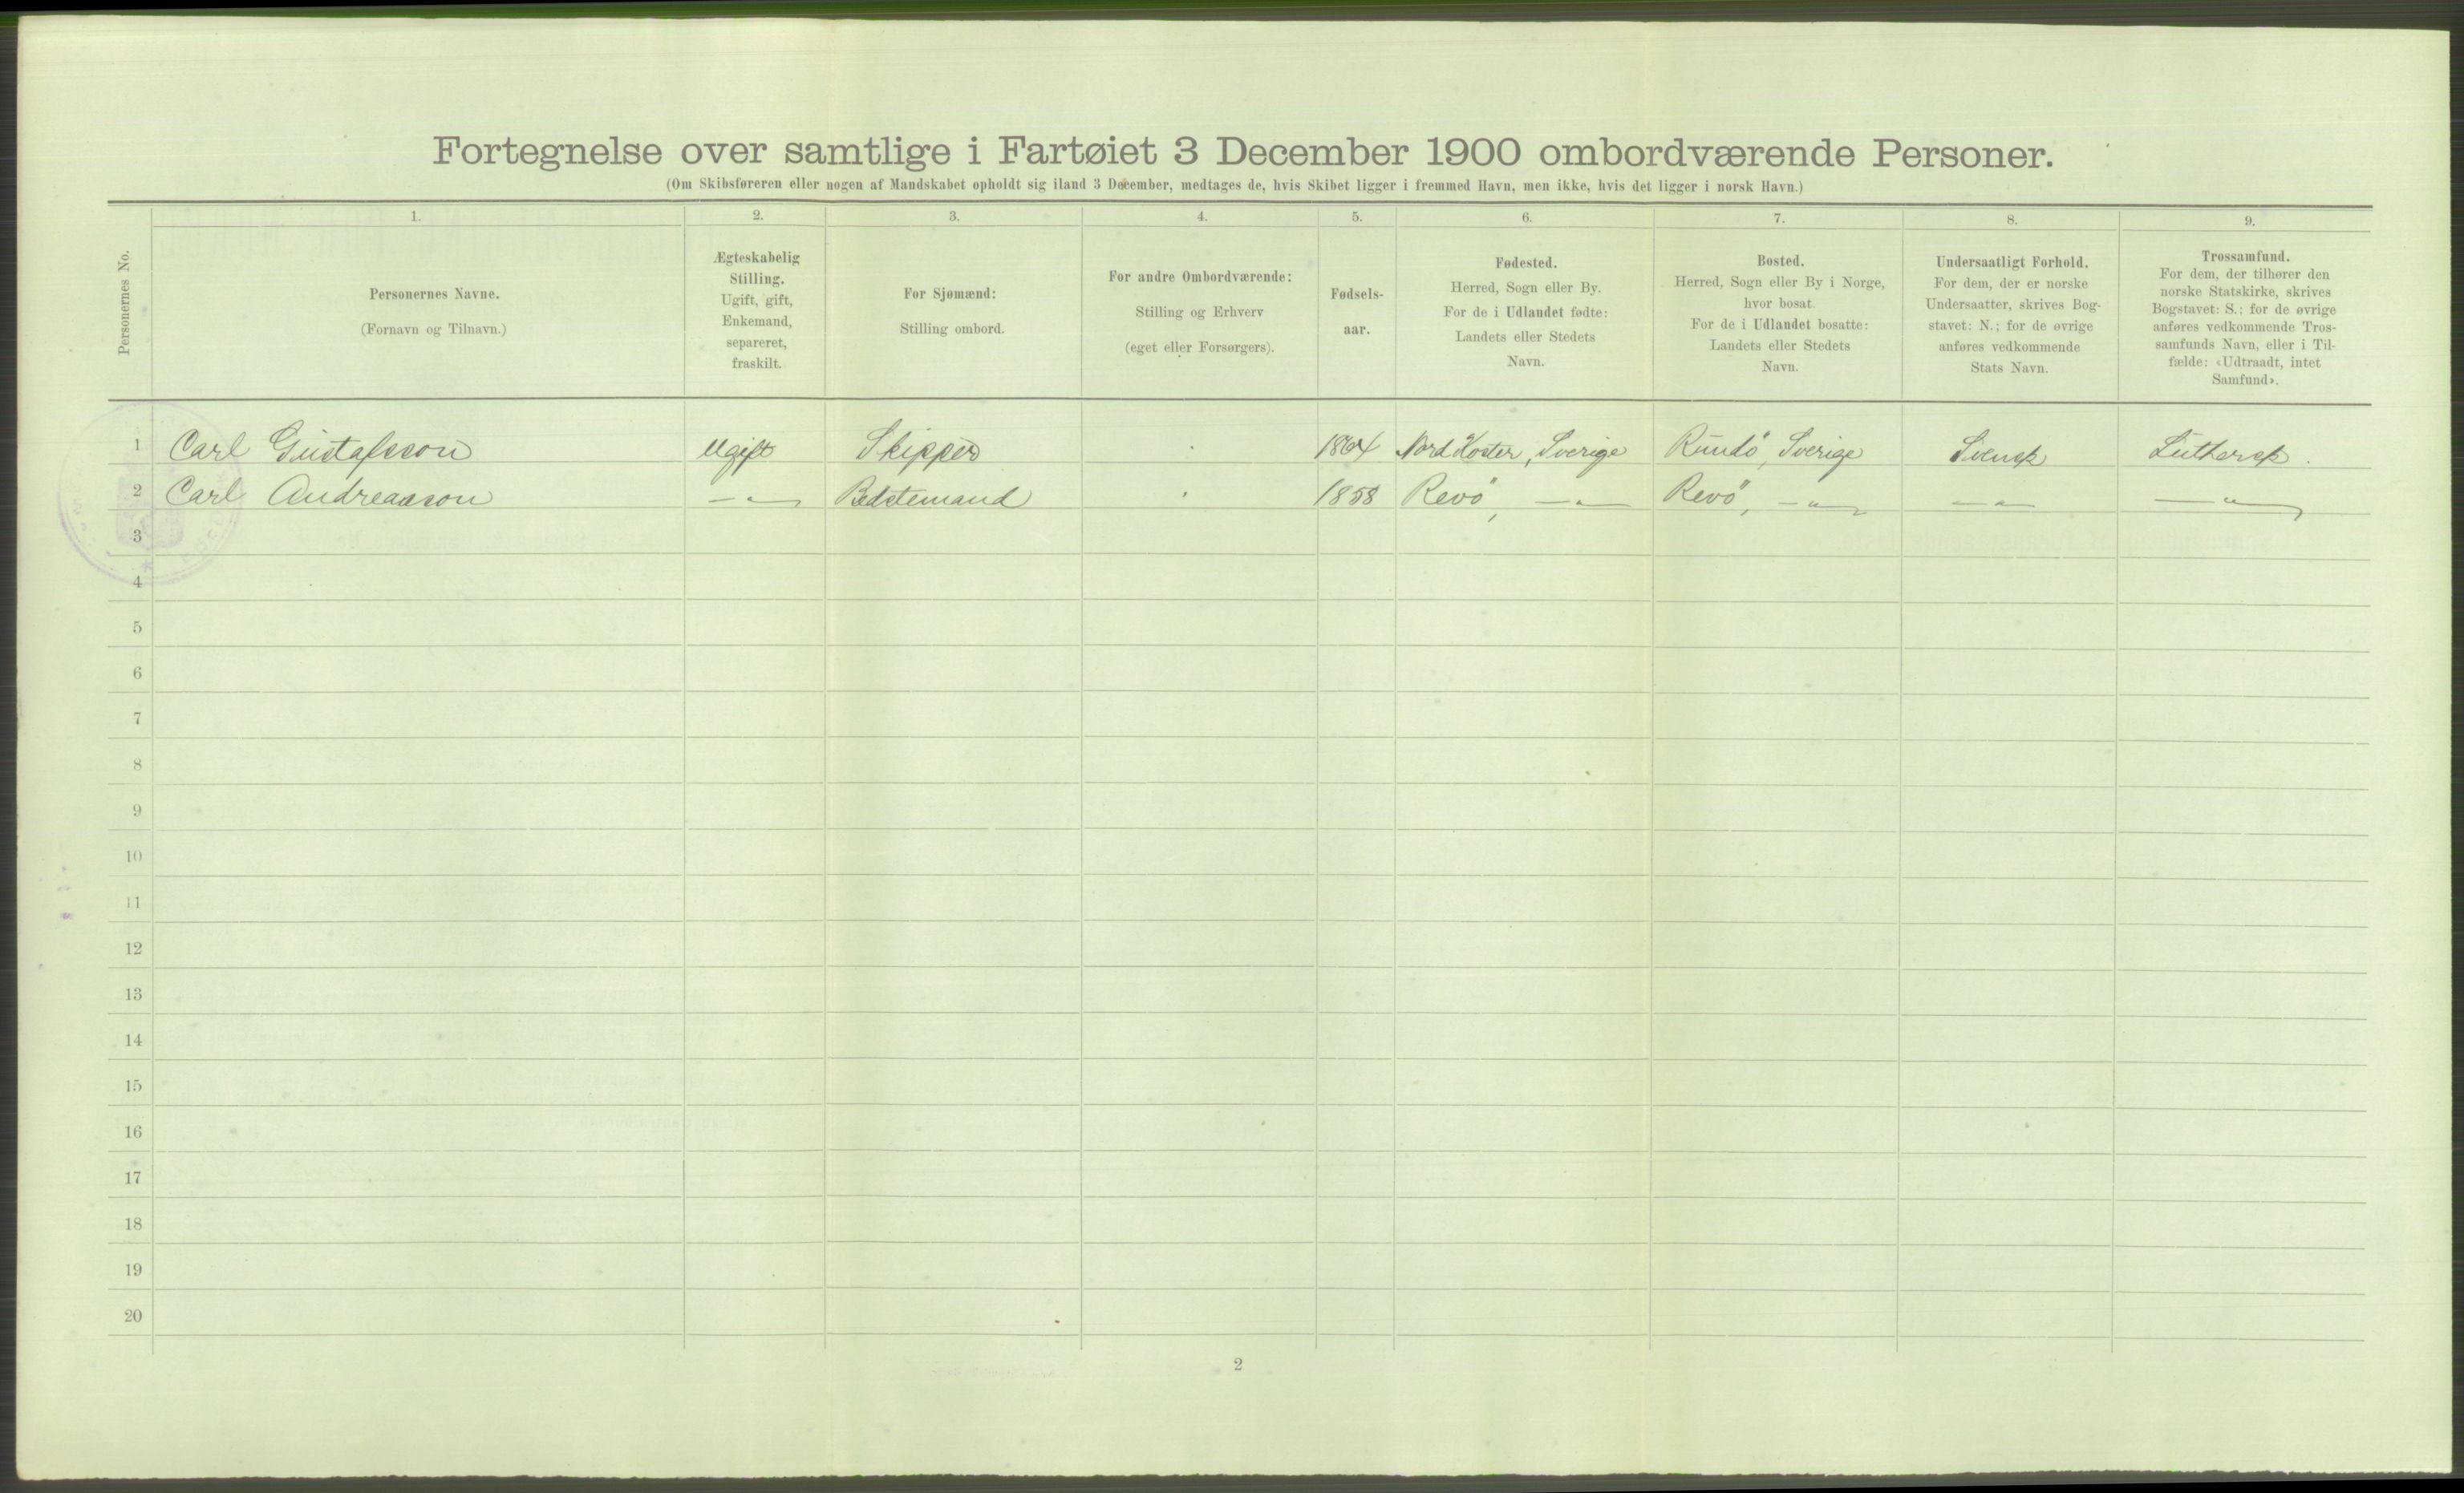 Fortegnelse over samtlige i Fartøiet 3 December 1900 ombordværende Personer.
(Om Skibsføreren eller nogen af Mandskabet opholdt sig iland 3 December, medtages de, hvis Skibet ligger i fremmed Havn, men ikke, hvis det ligger i norsk Havn.)
Personernes No.
1.
Personernes Navne.
(Fornavn og Tilnavn.)
2.
Ægteskabelig
Stilling.
Ugift, gift,
Enkemand,
separeret,
fraskilt.
3.
For Sjømænd:
Stilling ombord.
4.
For andre Ombordværende:
Stilling og Erhverv
(eget eller Forsørgers).
5.
Fødsels-
aar.
6.
Fødested.
Herred, Sogn eller By.
For de i Udlandet fødte:
Landets eller Stedets
Navn.
7.
Bosted.
Herred, Sogn eller By i Norge,
hvor bosat.
For de i Udlandet bosatte:
Landets eller Stedets
Navn.
8.
Undersaatligt Forhold.
For dem, der er norske
Undersaatter, skrives Bog-
stavet: N.; for de øvrige
anføres vedkommende
Stats Navn.
9.
Trossamfund.
For dem, der tilhører den
norske Statskirke, skrives
Bogstavet: S.; for de øvrige
anføres vedkommende Tros-
samfunds Navn, eller i Til-
fælde: «Udtraadt, intet
Samfund».
1 Carl Gustafsson Ugift Skipper 1864 Nord Koster, Sverige Rundö, Sverige Svensk Luthersk.
2 Carl Andreasson —„— Bedstemand 1858 Revö, —„— Revö, —„— —„— —„—
3
4
5
6
7
8
9
10
11
12
13
14
15
16
17
18
19
20
2